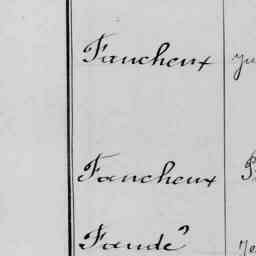 Faucheux
Faucheux
Faude?